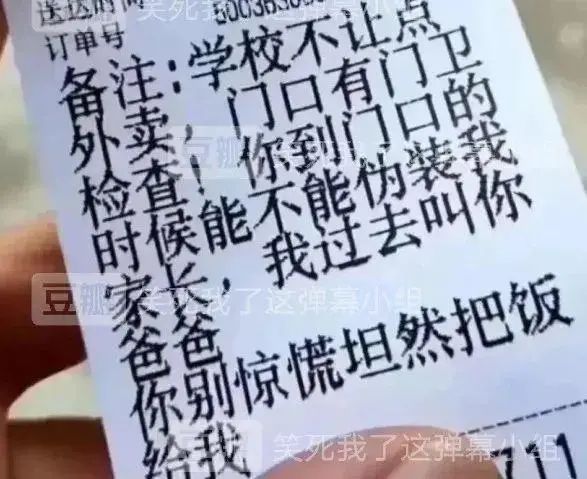 送达时间
订单号
备注:学校不让点
外卖，门口有门卫
检查！你到门口的
时候能不能伪装我
家长，我过去叫你
爸爸
你别惊慌坦然把饭
给我
711
豆瓣 笑死我了这弹幕小组
豆瓣 笑死我了这弹幕小组
豆瓣 笑死我了这弹幕小组
笑死我了这弹幕小组